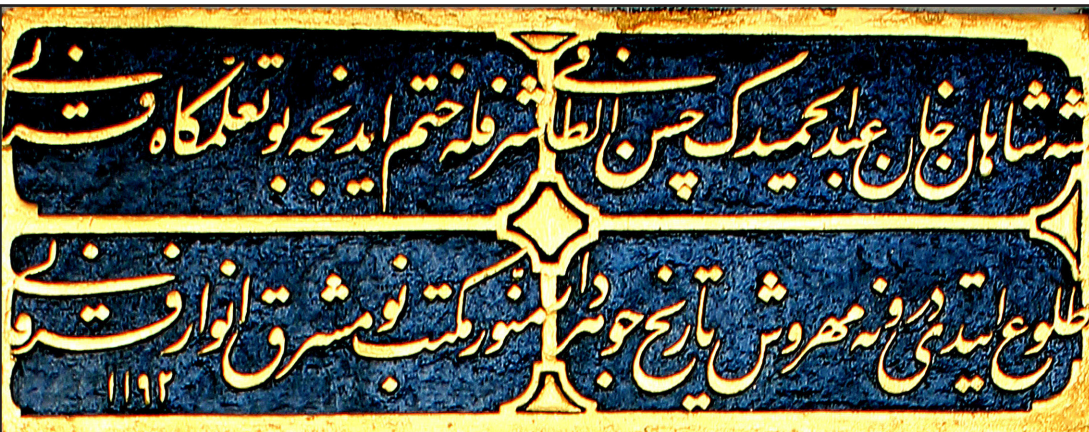 شه شاهان خان عبد الحميدك حسن الطافی
شرفله ختم ايدنجه بو تعلمكاه قرآنی
طلوع ايتدی درونه مهروش تاريخ جوهردار
منور مكتب نو مشرق انوار فرقانی
١١٩٢